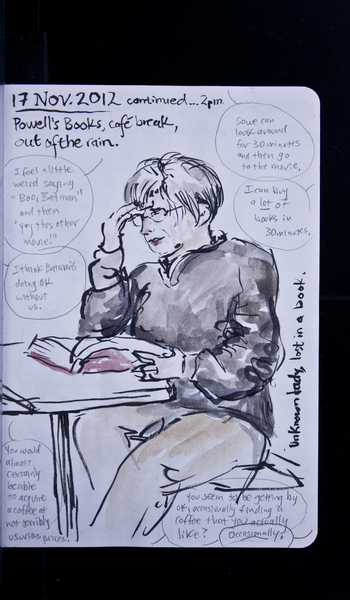 17 NOV. 2012 continued... 2pm.
Powell's Books, café break,
out of the rain.
So we can
look around
for 30 minutes
and then go
to the movie.
I feel a little
weird saying
"Boo, Batman"
and then
"yay this other
movie."
I can buy
a lot of
books in
30 minutes.
I think Batman's
doing OK
without
us.
Unknown lady, lost in a book.
You would
almost
certainly
be able
to acquire
a coffee at
not terribly
usurious prices.
You seem to be getting by
OK, occasionally finding a
coffee that you actually
like?
Occasionally.